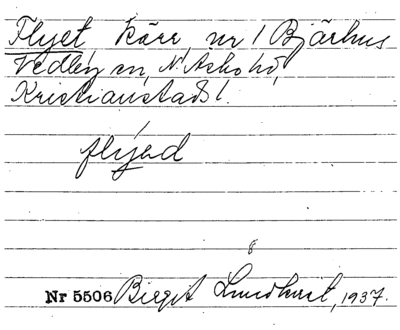 Flyet, kärr, nr 1 Bjärhus
Vedby sn, N. Åsbo hd,
Kristianstads l.
flýəd
Nr 5506 Birgit Lundkvist, 1937.